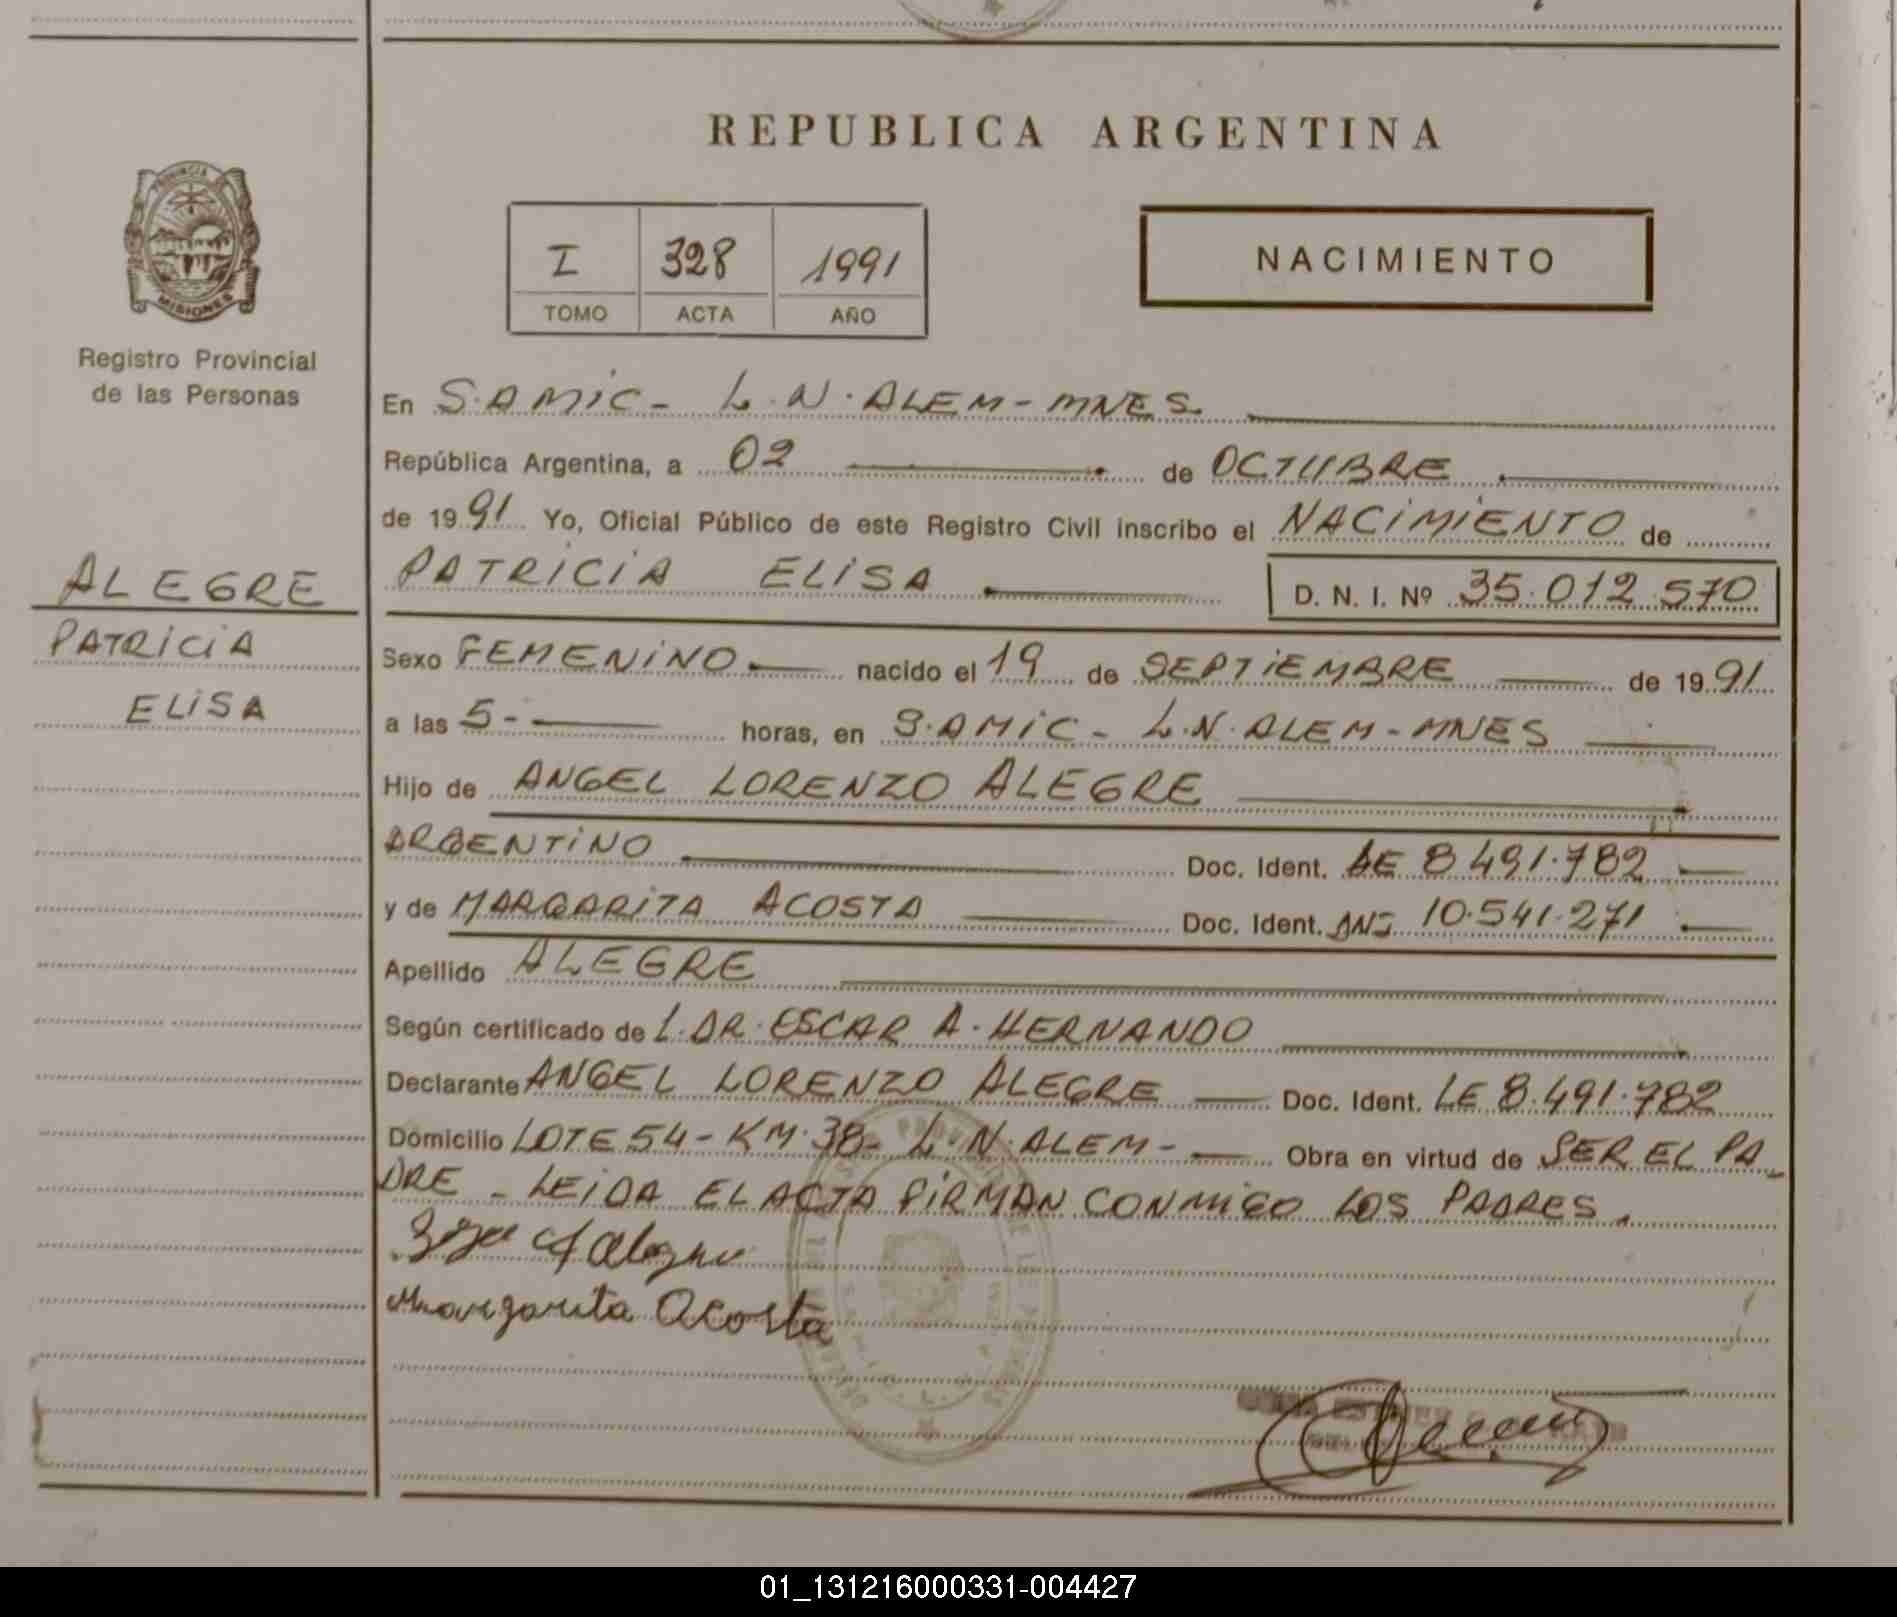 REPUBLICA ARGENTINA
PROVINCIA DE
MISIONES
Registro Provincial
de las Personas
I 328 1991
TOMO ACTA AÑO
NACIMIENTO
En S.AMIC- L.N.ALEM-MNES
República Argentina, a 02 de OCTUBRE
de 1991 Yo, Oficial Público de este Registro Civil inscribo el NACIMIENTO de
PATRICIA ELISA D. N. I. Nº 35.012.570
ALEGRE
PATRICIA
ELISA
Sexo FEMENINO nacido el 19 de SEPTIEMBRE de 1991
a las 5- horas, en S.AMIC- L.N.ALEM-MNES
Hijo de ANGEL LORENZO ALEGRE
ARGENTINO Doc. Ident. LE 8.491.782
y de MARGARITA ACOSTA Doc. Ident. DNI 10.541.271
Apellido ALEGRE
Según certificado de L.DR. A. HERNANDO
Declarante ANGEL LORENZO ALEGRE Doc. Ident. LE 8.491.782
Domicilio LOTE 54-KM.38- L.N.ALEM- Obra en virtud de SER EL PA-
DRE - LEIDA EL ACTA FIRMAN CONMIGO LOS PADRES.
Margarita Acosta
01_131216000331-004427